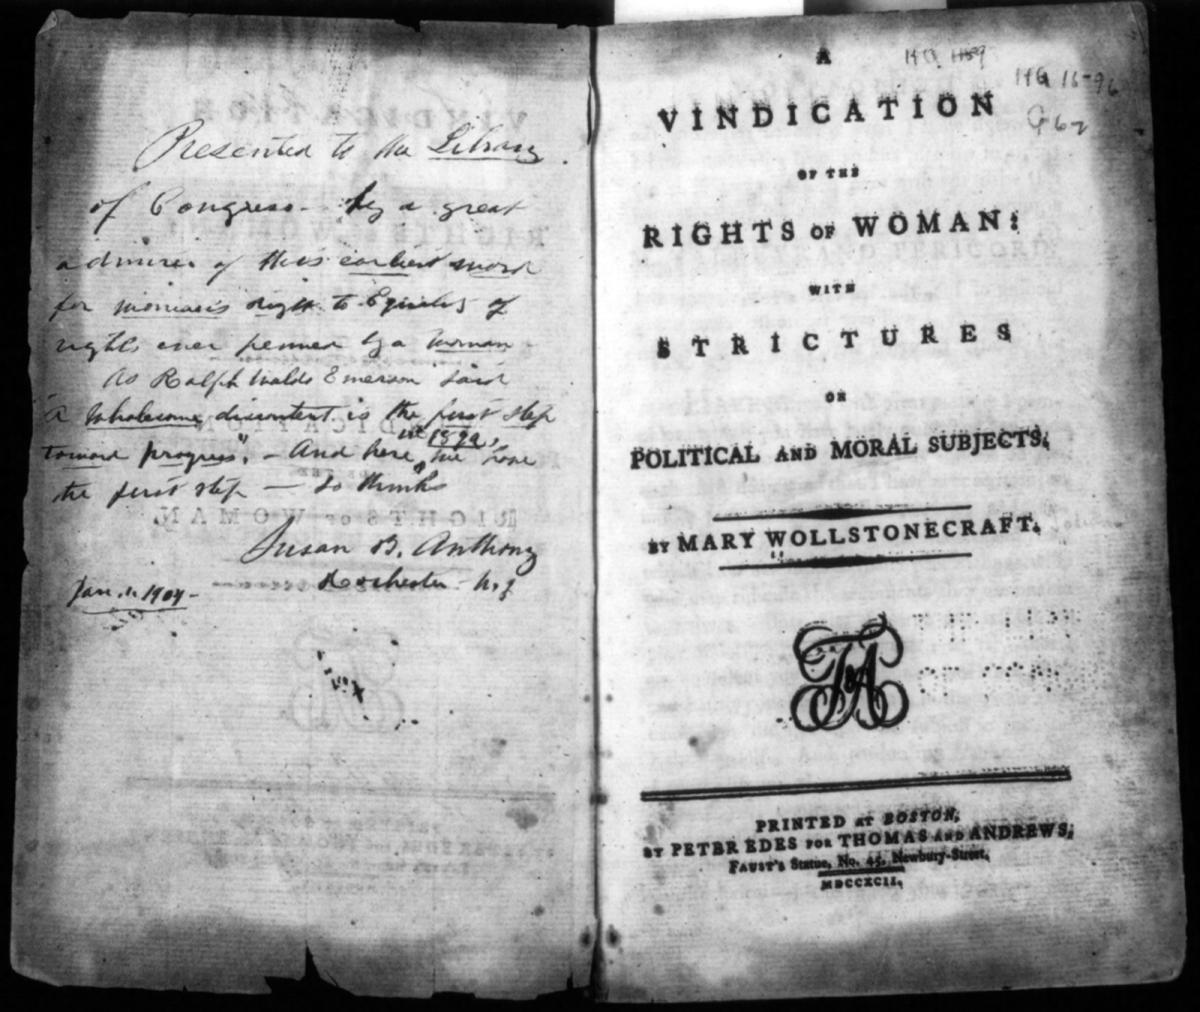 Presented to the Library
of Congress - by a great
admirer of this earliest word
for woman's right to Equality of
rights ever penned by a woman -
As Ralph Waldo Emerson said
"A Wholesome discontent is the first step
toward progress". - And here, in 1892, we have
the first step - So thinks
Susan B. Anthony
Rochester - N.Y
Jan. 1. 1904 -
A
VINDICATION
OF THE
RIGHTS OF WOMAN:
WITH
STRICTURES
ON
POLITICAL AND MORAL SUBJECTS,
BY MARY WOLLSTONECRAFT.
T&A
PRINTED AT BOSTON,
BY PETER EDES FOR THOMAS AND ANDREWS,
FAUST'S Statue, No. 45, Newbury-Street,
MDCCXCII.
HQ 1159
HQ 15-96